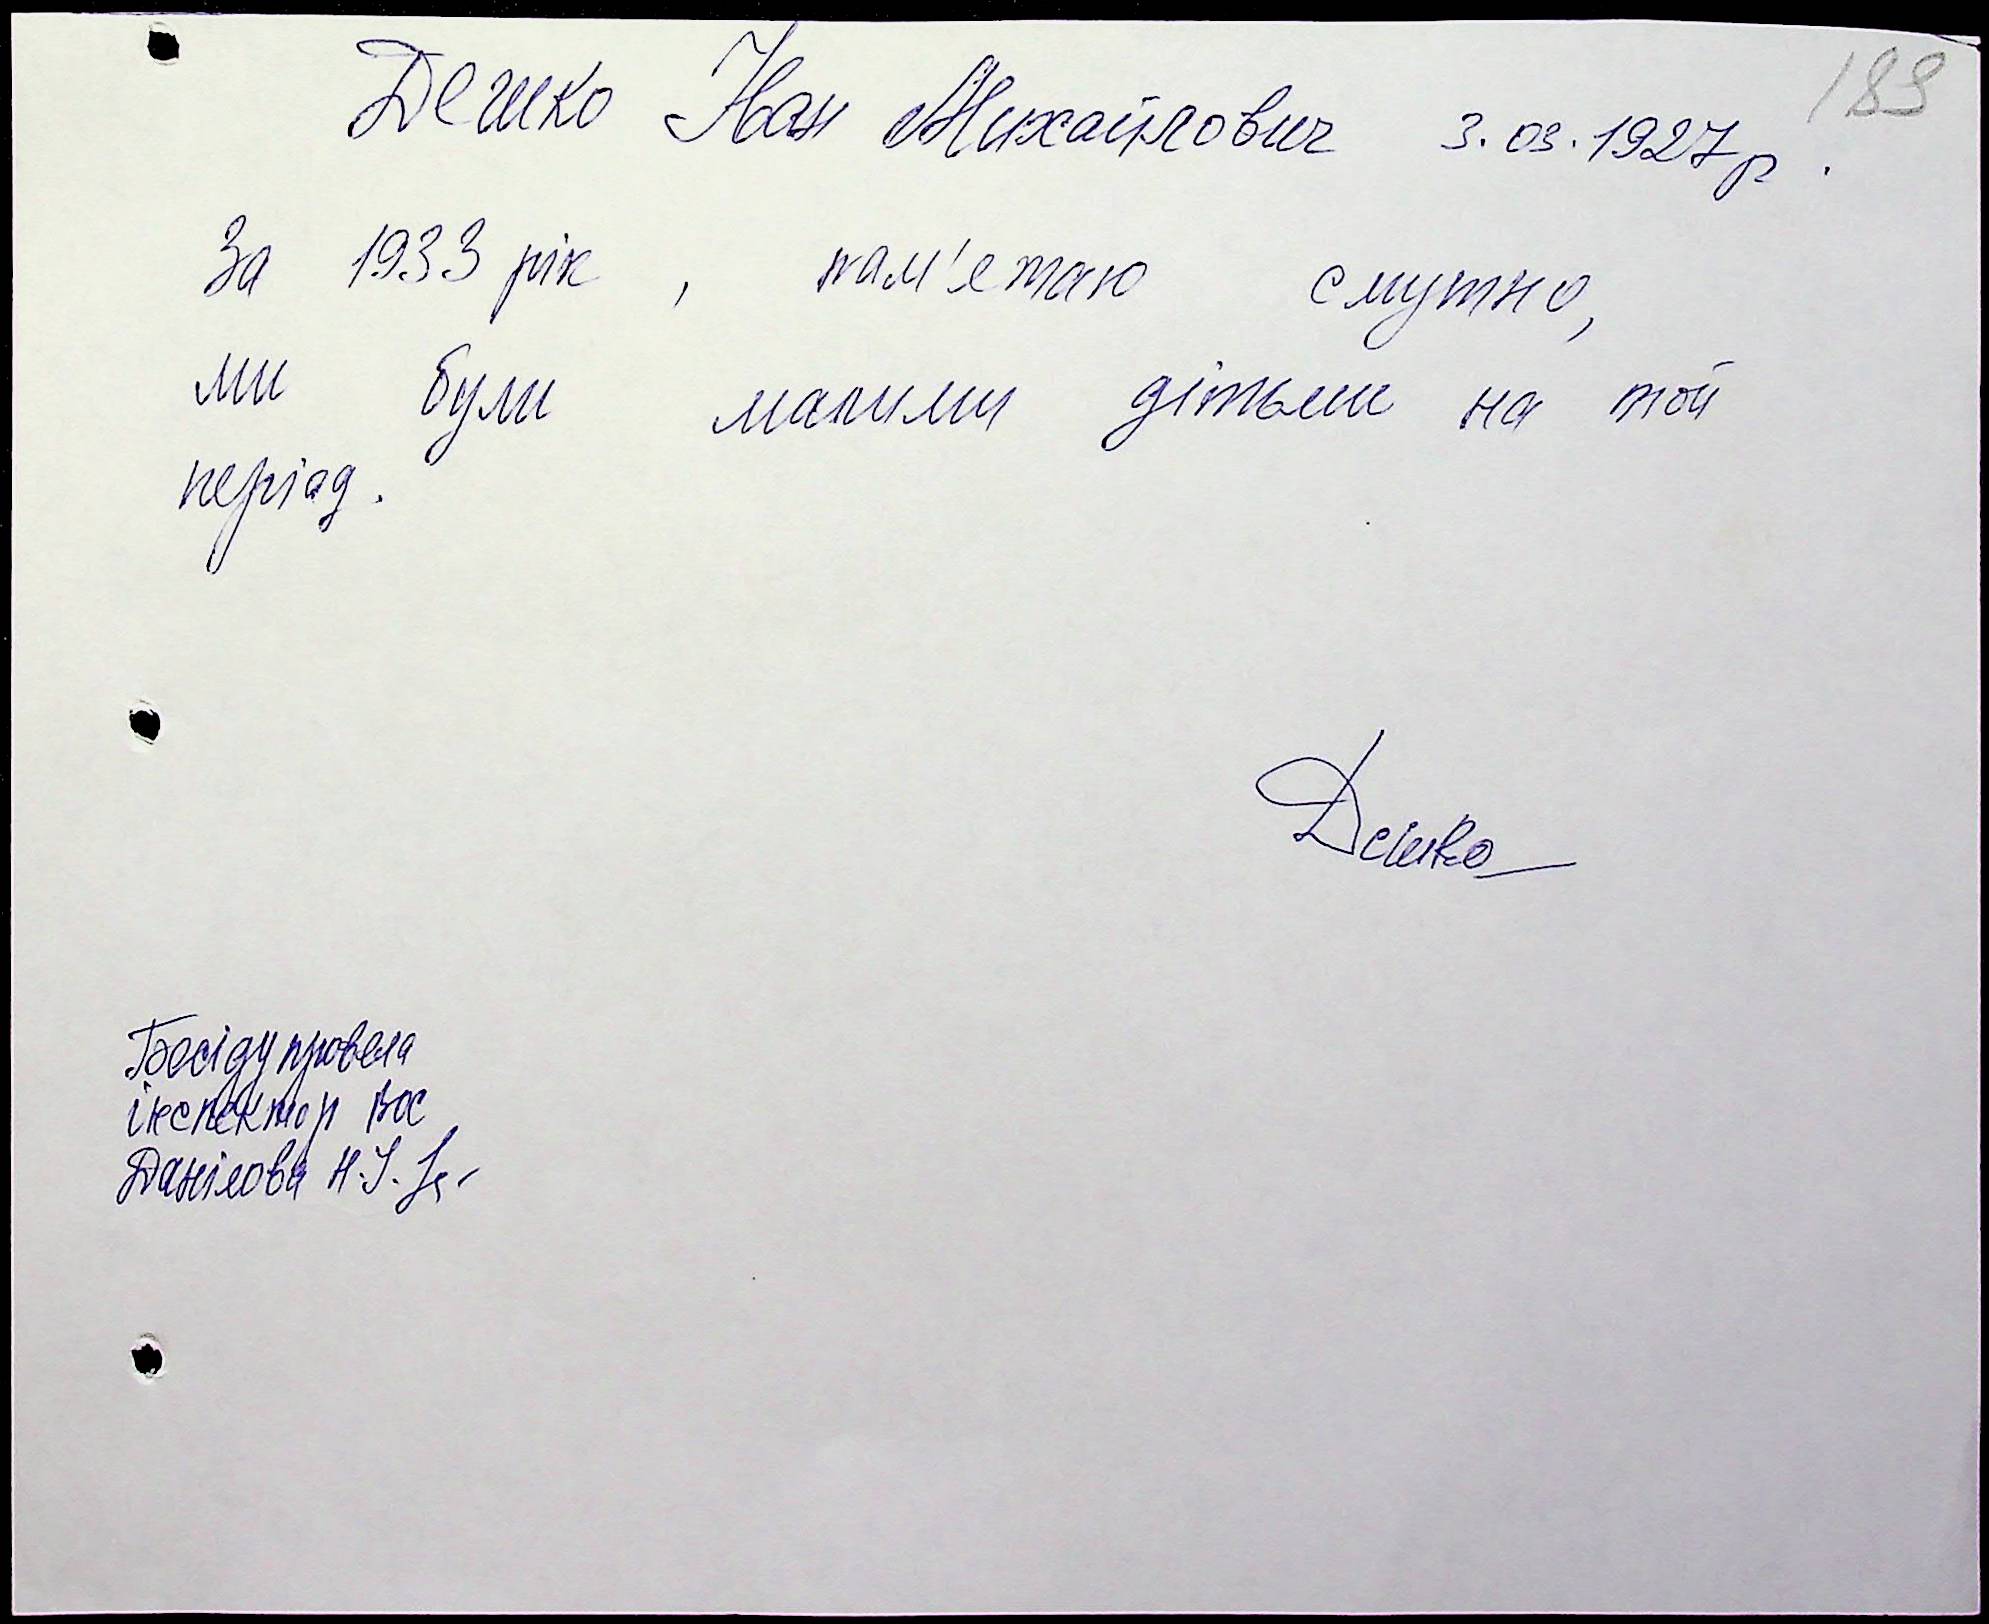 189
Дешко Іван Михайлович 3.03.1927р.
За 1933 рік, пам'етаю смутно,
ми були малими дітьми на той
період.
Дешко
Бесіду провела
інспектор ВОС
Данілова Н.І.